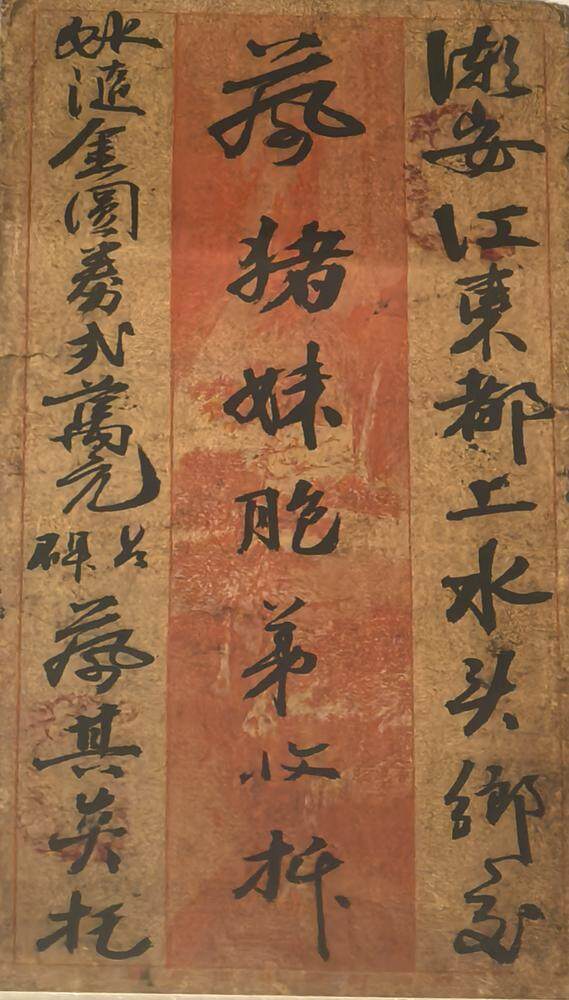 潮安江東都上水头鄉交
蔡猪妹胞弟收拆
滙金圓券弍萬元
蔡其英托